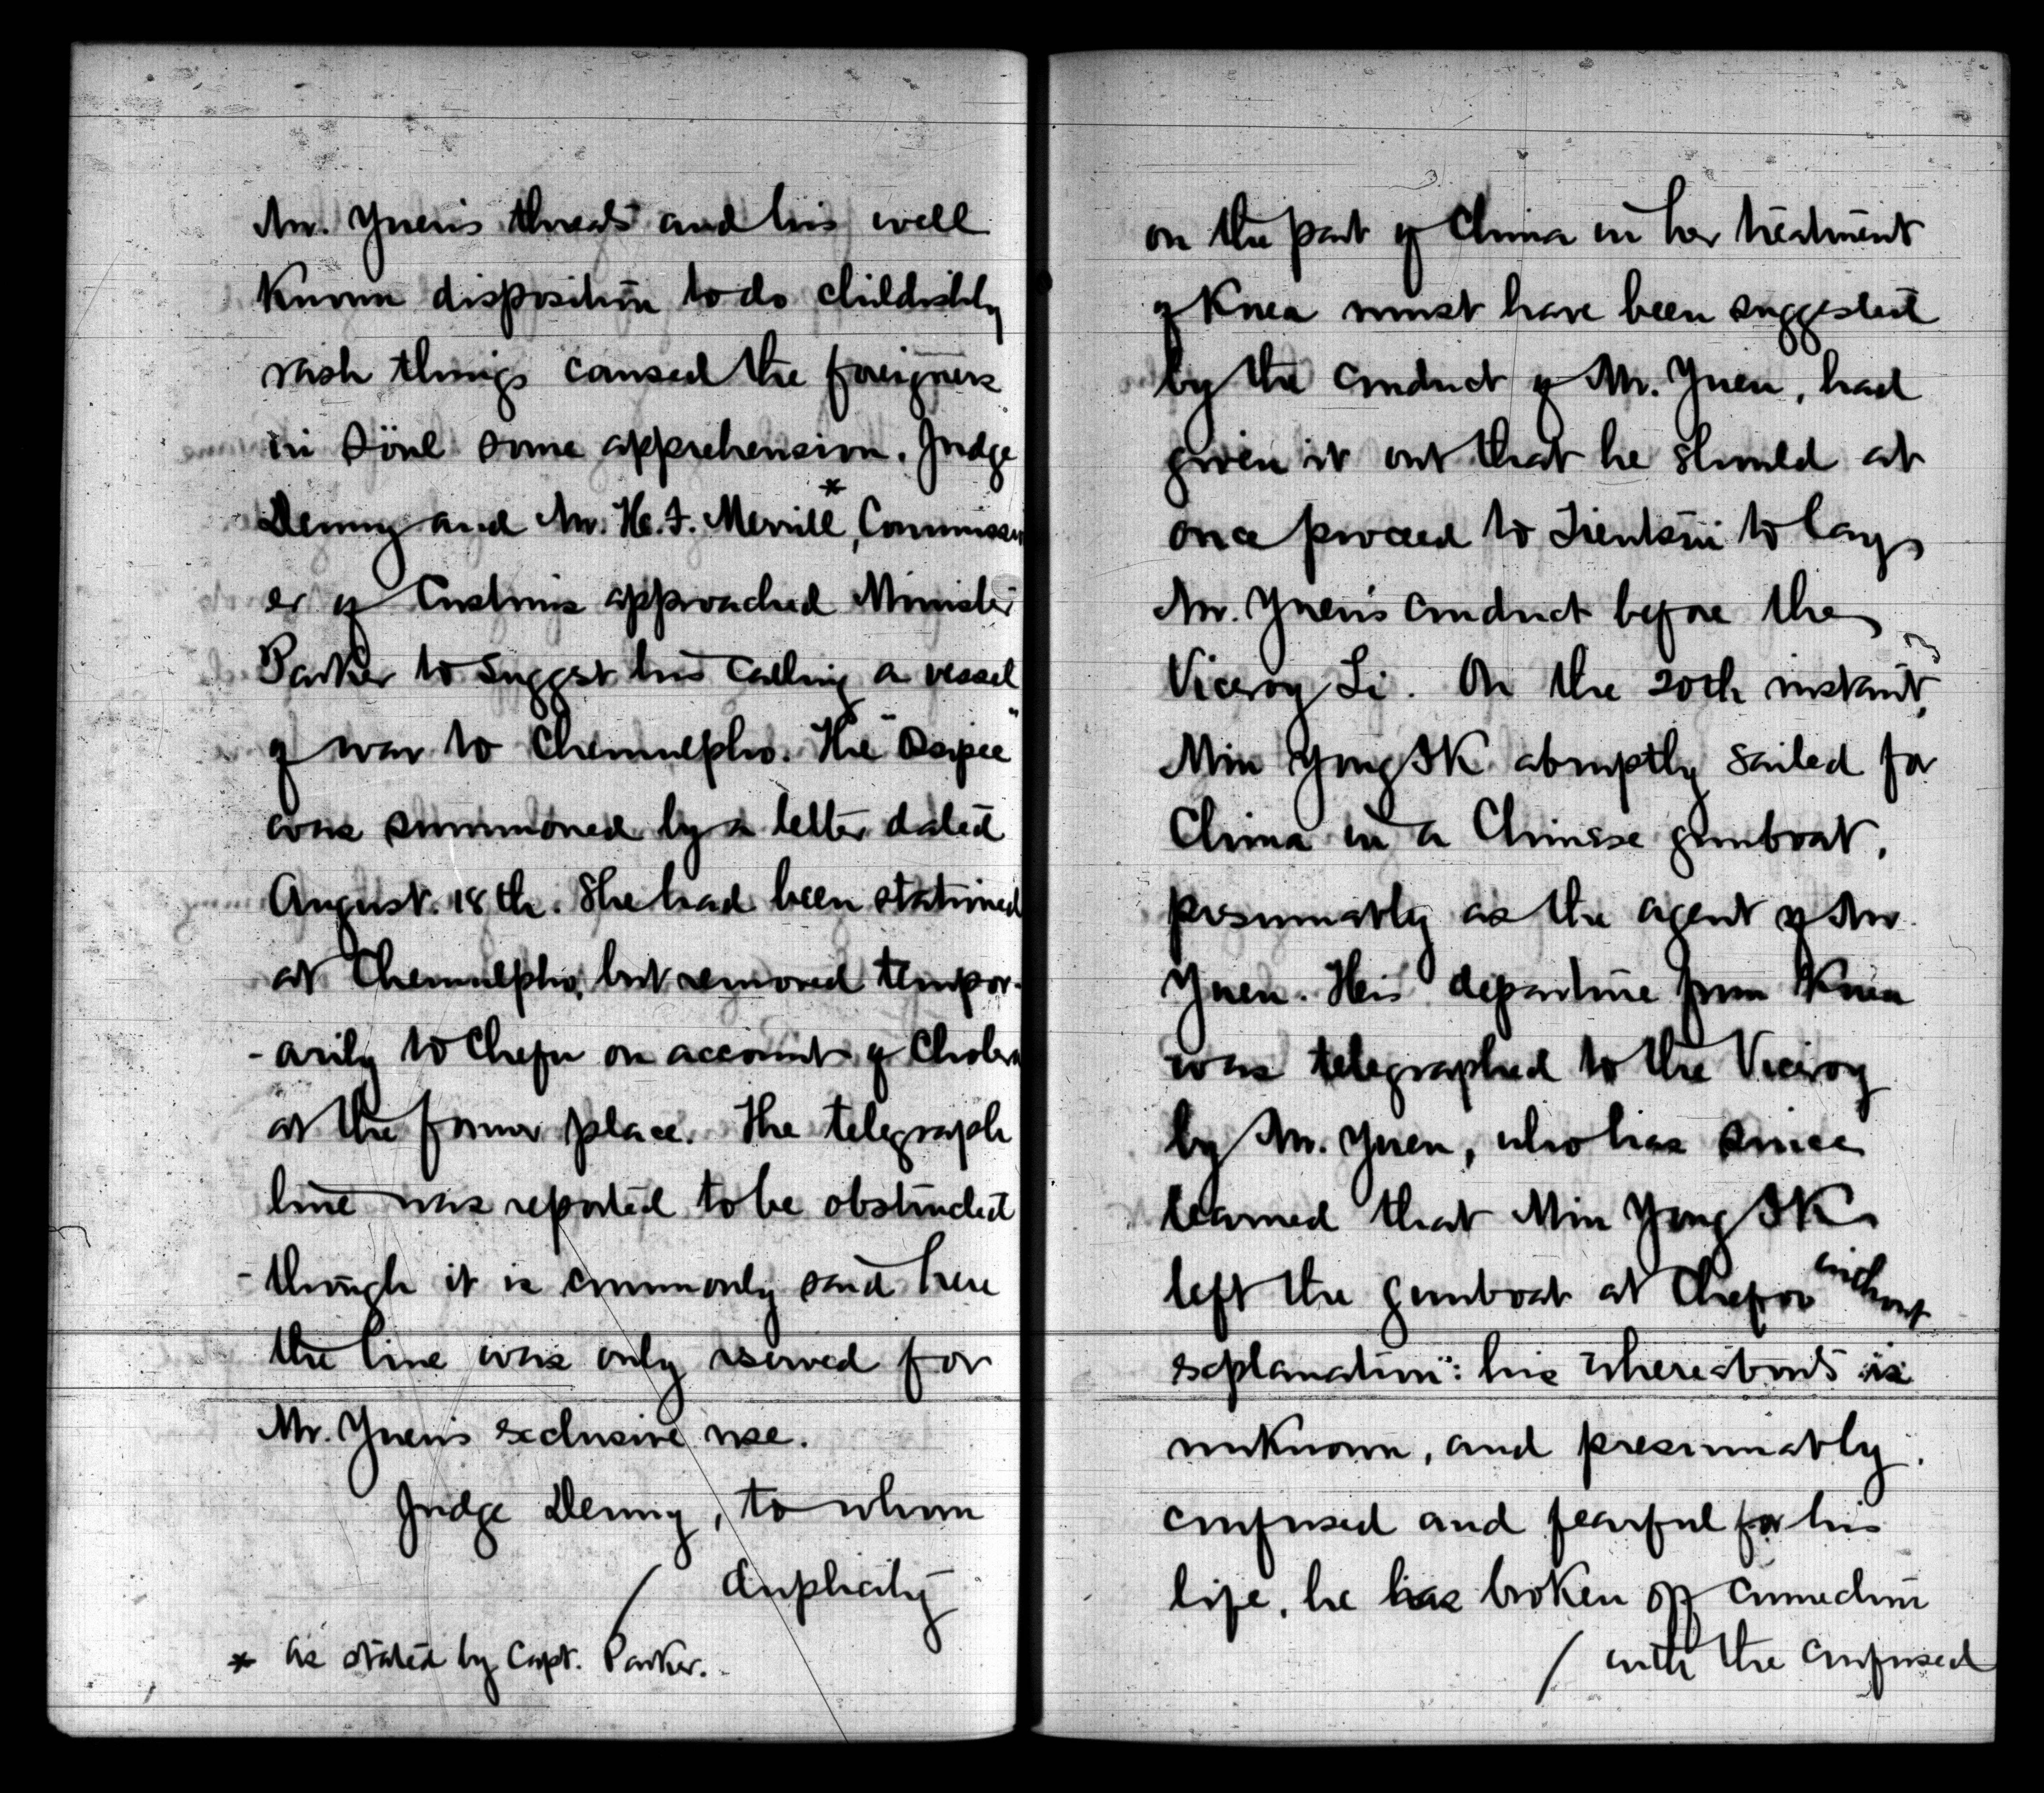 Mr. Yuen's threats and his well
Known disposition to do childishly
rash things caused the foreigners
in Söul some apprehension. Judge
Denny and Mr. H. F. Merrill,* Commission
er of Customs approached Minister
Parker to suggest his calling a vessel
of war to Chemulpho. The "Ossipee"
was summoned by a letter dated
August. 18th. She had been stationed
at Chemulpho, but removed tempor-
- arily to Chefu on account of Cholera
at the former place. The telegraph
line was reported to be obstructed
- though it is commonly said here
the line was only reserved for
Mr. Yuen's exclusive use.
Judge Denny, to whom
/ duplicity
* as stated by Capt. Parker.
on the part of China in her treatment
of Korea must have been suggested
by the conduct of Mr. Yuen, had
given it out that he should at
once proceed to Tientsin to lay
Mr. Yuen's conduct before the
Viceroy Li. On the 20th instant,
Min Yong IK abruptly sailed for
China in a Chinese gunboat,
presumably as the agent of Mr.
Yuen. His departure from Korea
was telegraphed to the Viceroy
by Mr. Yuen, who has since
learned that Min Yong IK
left the gunboat at Chefoo without
explanation: his whereabouts is
unknown, and presumably,
confused and fearful for his
life, he has broken off connection
/ with the confused